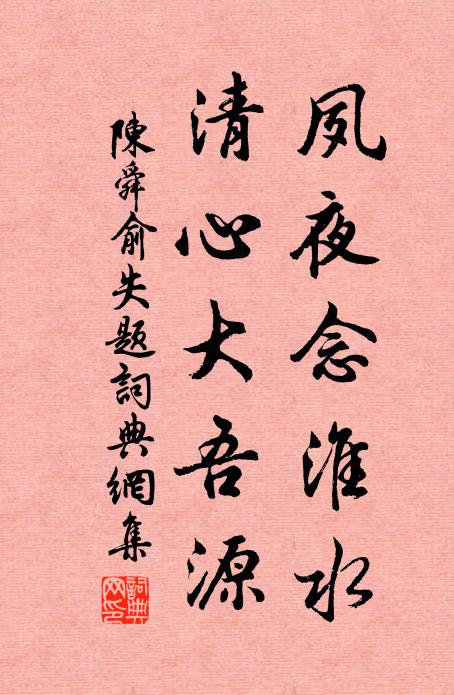 夙夜念淮水
清心大吾源
陳舜俞失題詞典網集
詞典網印